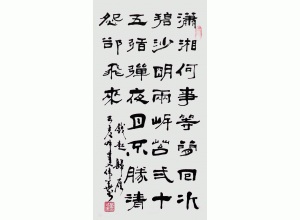 瀟湘何事等夢回水
碧沙明兩岸苔弍十
五弦彈夜月不勝清
怨卻飛來
錢起歸雁